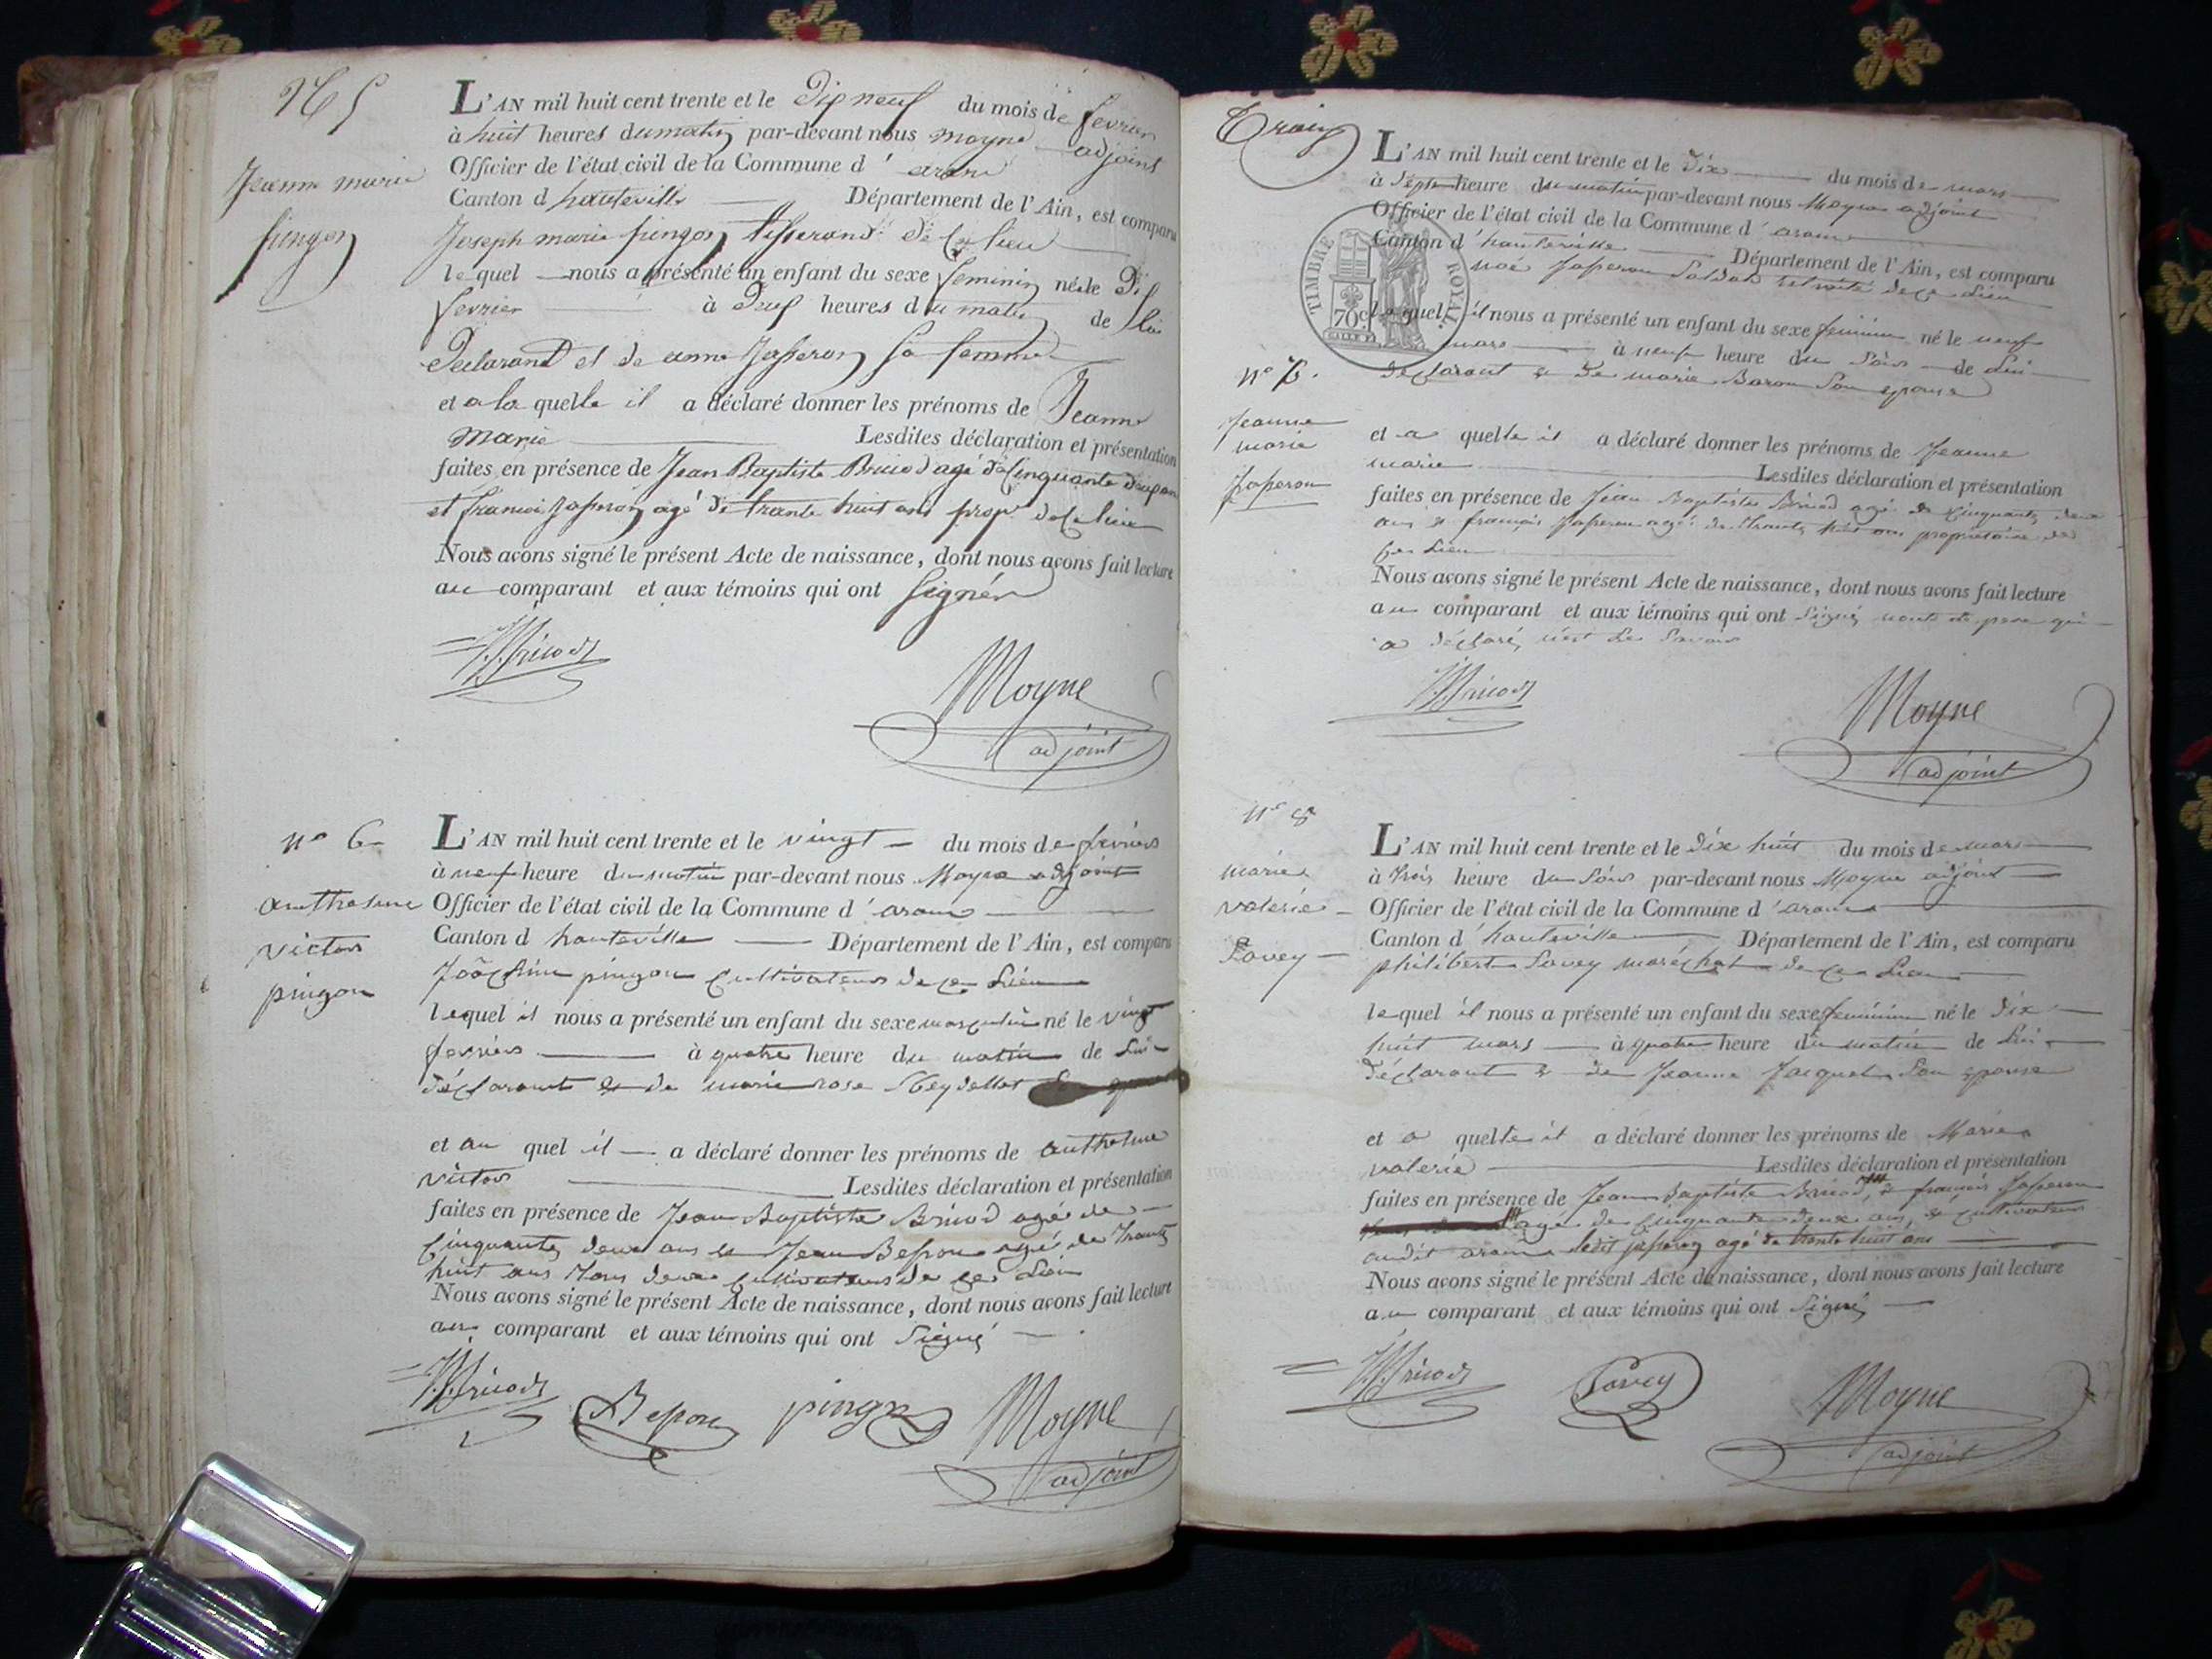 N° 5
Jeanne marie
pingon
L'AN mil huit cent trente et le Dix neuf du mois de fevrier
à huit heures du matin par-devant nous moyne adjoint
Officier de l'état civil de la Commune d' aranc
Canton d hauteville Département de l'Ain, est comparu
Joseph marie pingon tisserand de Ce lieu
lequel nous a présenté un enfant du sexe feminin né le Dix
fevrier à heures du matin de lui
Declarant et de anne Jasseron sa femme
et a la quelle il a déclaré donner les prénoms de Jeanne
Marie Lesdites déclaration et présentation
faites en présence de Jean Baptiste Bricod agé de Cinquante deux ans
et francois Jasseron agé de trante huit ans prop.re de Ce lieu
Nous avons signé le présent Acte de naissance, dont nous avons fait lecture
au comparant et aux témoins qui ont Signér
JBricod
Moyne
adjoint
n° 6
anthelme
victor
pingon
L'AN mil huit cent trente et le vingt du mois de fevrier
à neuf heure du matin par-devant nous Moyne adjoint
Officier de l'état civil de la Commune d' aranc
Canton d hauteville Département de l'Ain, est comparu
Joachim pingon Cultivateur de ce Lieu
lequel il nous a présenté un enfant du sexe masculin né le vingt
fevrier à quatre heure du matin de Lui
déclarant et de marie rose
et au quel il a déclaré donner les prénoms de anthelme
victor Lesdites déclaration et présentation
faites en présence de Jean Baptiste Bricod agé de
Cinquante deux ans et Jean Besson agé de trante
huit ans tous deux Cultivateurs de ce Lieu
Nous avons signé le présent Acte de naissance, dont nous avons fait lecture
au comparant et aux témoins qui ont Signé
JBricod Besson pingon Moyne
adjoint
Trois
TIMBRE ROYAL
70c
n° 7.
Jeanne
marie
Jasseron
L'AN mil huit cent trente et le Dix du mois de mars
à Sept heure du matin par-devant nous Moyne adjoint
Officier de l'état civil de la Commune d' aranc
Canton d' hauteville Département de l'Ain, est comparu
noé Jasseron Soldat retraité de ce Lieu
lequel il nous a présenté un enfant du sexe feminin né le neuf
mars à neuf heure du Soir de Lui
declarant et de marie Baron Son epouse
et a quelle il a déclaré donner les prénoms de Jeanne
marie Lesdites déclaration et présentation
faites en présence de Jean Baptiste Bricod agé de Cinquante deux
ans et françois Jasseron agé de trante huit ans propriétaire de
ce Lieu
Nous avons signé le présent Acte de naissance, dont nous avons fait lecture
au comparant et aux témoins qui ont Signé qui
a déclaré
JBricod
Moyne
adjoint
n° 8
marie
valerie
Savey
L'AN mil huit cent trente et le Dix huit du mois de mars
à trois heure du Soir par-devant nous Moyne adjoint
Officier de l'état civil de la Commune d' aranc
Canton d' hauteville Département de l'Ain, est comparu
philibert Savey maréchal de ce Lieu
lequel il nous a présenté un enfant du sexe feminin né le Dix
huit mars à quatre heure du matin de Lui
déclarant et de Jeanne Jacquet Son epouse
et a quelle il a déclaré donner les prénoms de Marie
valerie Lesdites déclaration et présentation
faites en présence de Jean Baptiste Bricod, et françois Jasseron
agé de Cinquante deux ans, et Cultivateur
audit aranc ledit jasseron agé de trante huit ans
Nous avons signé le présent Acte de naissance, dont nous avons fait lecture
au comparant et aux témoins qui ont Signé
JBricod Savey Moyne
adjoint